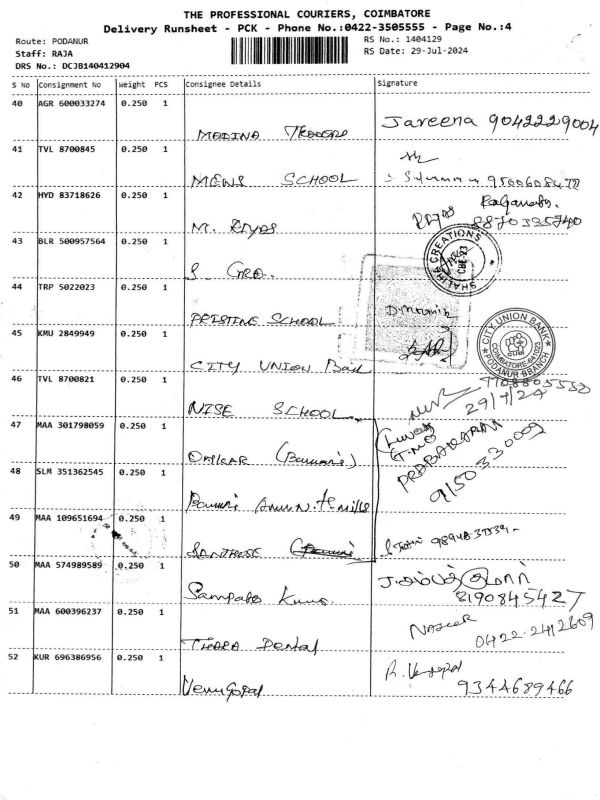 THE PROFESSIONAL COURIERS, COIMBATORE
Delivery Runsheet - PCK - Phone No.:0422-3505555 - Page No.:4
Route: PODANUR
RS No.: 1404129
Staff: RAJA
RS Date: 29-Jul-2024
DRS No.: DCJB140412904
S No Consignment No Weight PCS Consignee Details Signature
40 AGR 600033274 0.250 1
MADINA Jareena 9042229004
41 TVL 8700845 0.250 1
MENS SCHOOL 9500608478
42 HYD 83718626 0.250 1
M. Riyas 8870335740
43 BLR 500957564 0.250 1
S
SHALIHA CREATIONS
CBE-23
44 TRP 5022023 0.250 1
PRISTINE SCHOOL
45 KMU 2849949 0.250 1
CITY UNION Bank
CITY UNION BANK
COIMBATORE-641023
PODANUR BRANCH
46 TVL 8700821 0.250 1
NISE SCHOOL 7708805552
29/7/24
47 MAA 301798059 0.250 1
OMKAR
PRABAKARAN
9150330009
48 SLM 351362545 0.250 1
49 MAA 109651694 0.250 1
SANTHOSE
50 MAA 574989589 0.250 1
Sampath Kumar
J.சம்பத்குமார்
8190845427
51 MAA 600396237 0.250 1
THARA Dental NASEER 0422-2412609
52 KUR 696386956 0.250 1
Venugopal R. Venugopal
9344689466